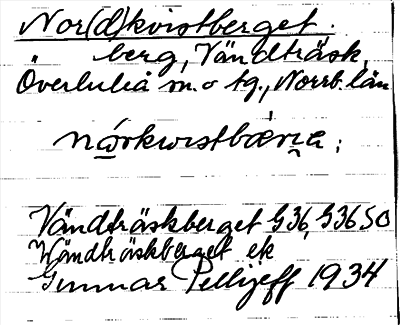 Nor(d)kvistberget.
berg, Vändträsk,
Överluleå sn. o tg., Norrb. län
nórkvistbærjə;
Vändträskberget G36, G36 SO
Wändträskberget ek
Gunnar Pellijeff 1934